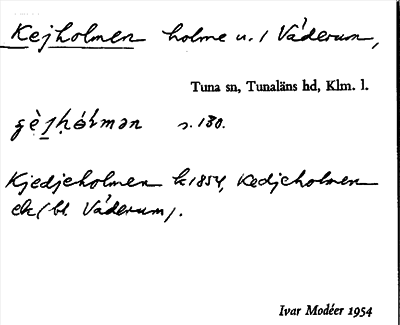 Kejholmen holme u. / Våderum,
Tuna sn, Tunaläns hd, Klm. l.
s. 180.
Kjedjeholmen k 1854, Kedjeholmen
ek (bl. Våderum).
Ivar Modéer 1954